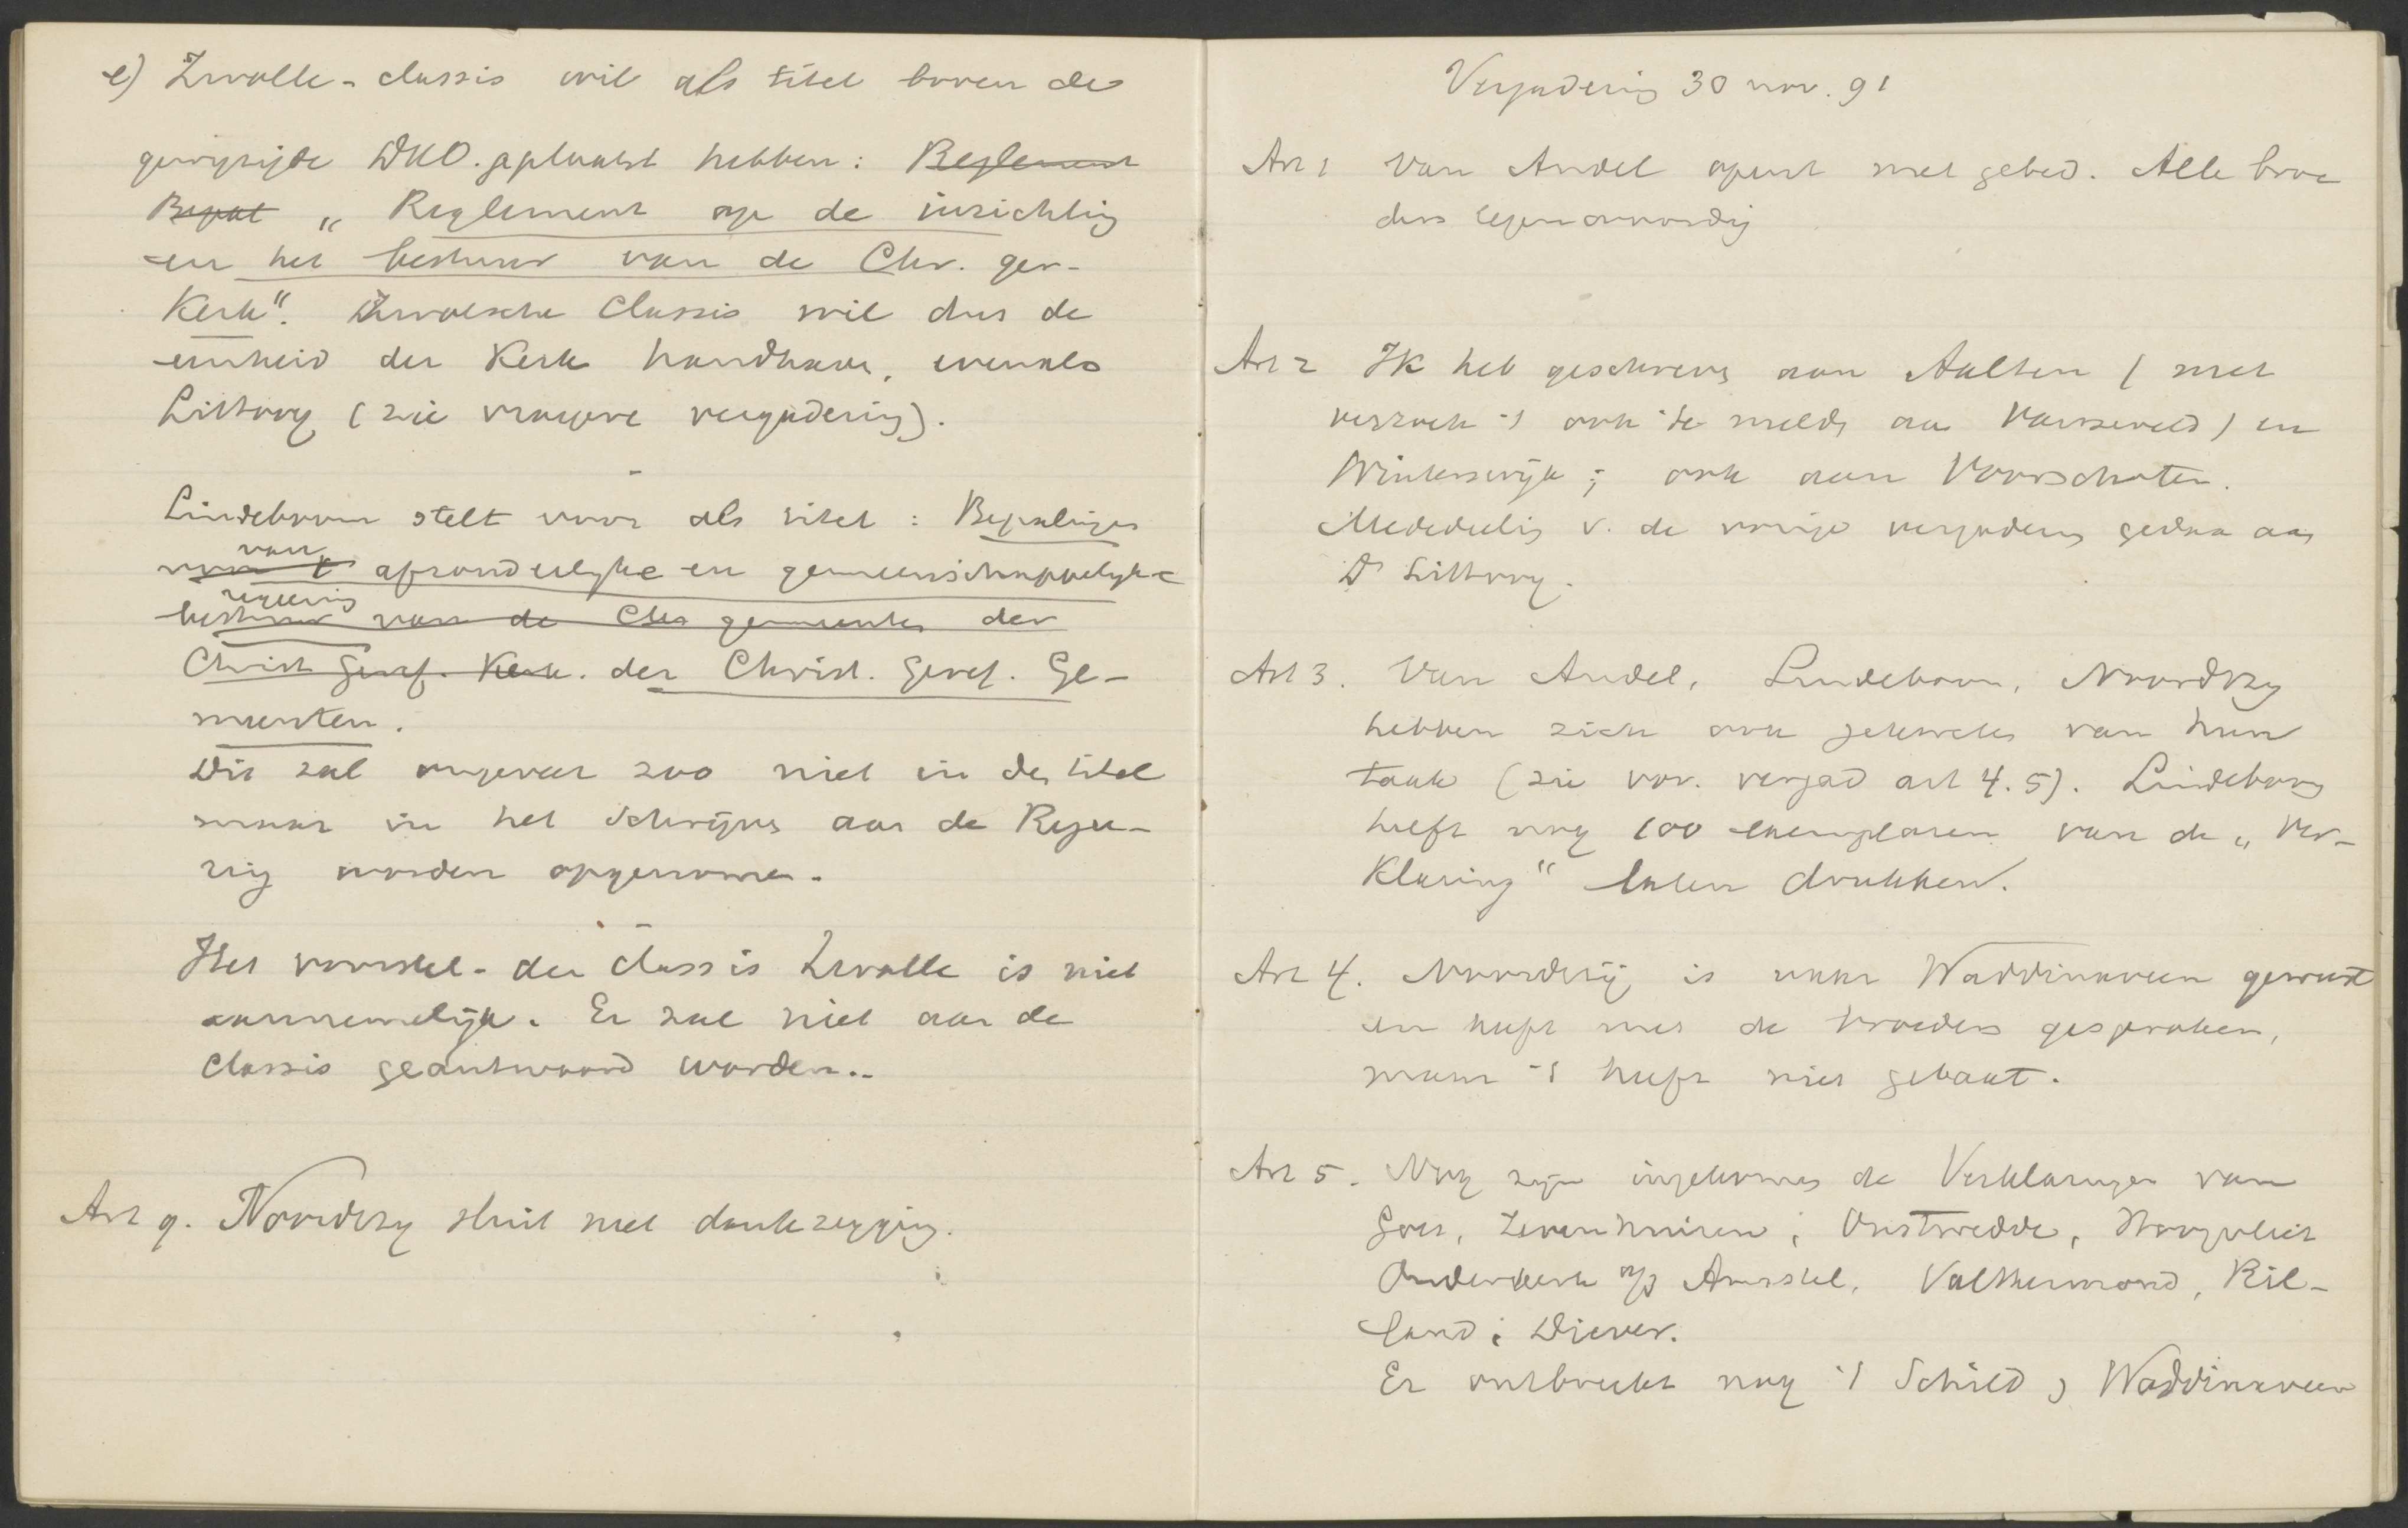 e) Zwolle-classis wil als titel boven de
gewijzigde DKO. geplaatst hebben: Reglement
Bepal „Reglement op de inrichting
en het bestuur van de Chr. ger.
Kerk". Zwolsche Classis wil dus de
eenheid der Kerk handhaven, evenals
Littooy (zie vroegere vergadering).
Lindeboom stelt voor als titel: Bepalingen
van
voor 't afzonderlijke en gemeenschappelijke
regeering
bestuur van de Chr gemeenten der
Christ Geref. Kerk. der Christ. Geref. Ge-
meenten.
Dit zal ongeveer zoo niet in de titel
maar in het schrijven aan de Regee-
ring worden opgenomen.
Het voorstel der Classis Zwolle is niet
aannemelijk. Er zal niet aan de
Classis geantwoord worden..
Art 9. Noordtzij sluit met dankzegging.
Vergadering 30 nov. 91
Art 1 Van Andel opent met gebed. Alle broe
ders tegenwoordig
Art 2 Ik heb geschreven aan Aalten (met
verzoek 't ook te melden aan Varsseveld) en
Winterswijk; ook aan Voorschoten.
Mededeeling v. de vorige vergadering gedaan aan
Ds Littooy.
Art 3. Van Andel, Lindeboom, Noordtzij
hebben zich ook gekweten van hun
taak (zie vor. vergad art 4.5). Lindeboom
heeft nog 100 exemplaren van de „Ver-
klaring" laten drukken.
Art 4. Noordtzij is naar Waddinxveen geweest
en heeft met de broeders gesproken,
maar 't heeft niet gebaat.
Art 5. Nog zijn ingekomen de Verklaringen van
Goes, Zevenhuizen, Onstwedde, Hoogvliet
Ouderkerk o/d Amstel, Valthermond, Ril-
land; Diever.
Er ontbreekt nog 't Schild, Waddinxveen